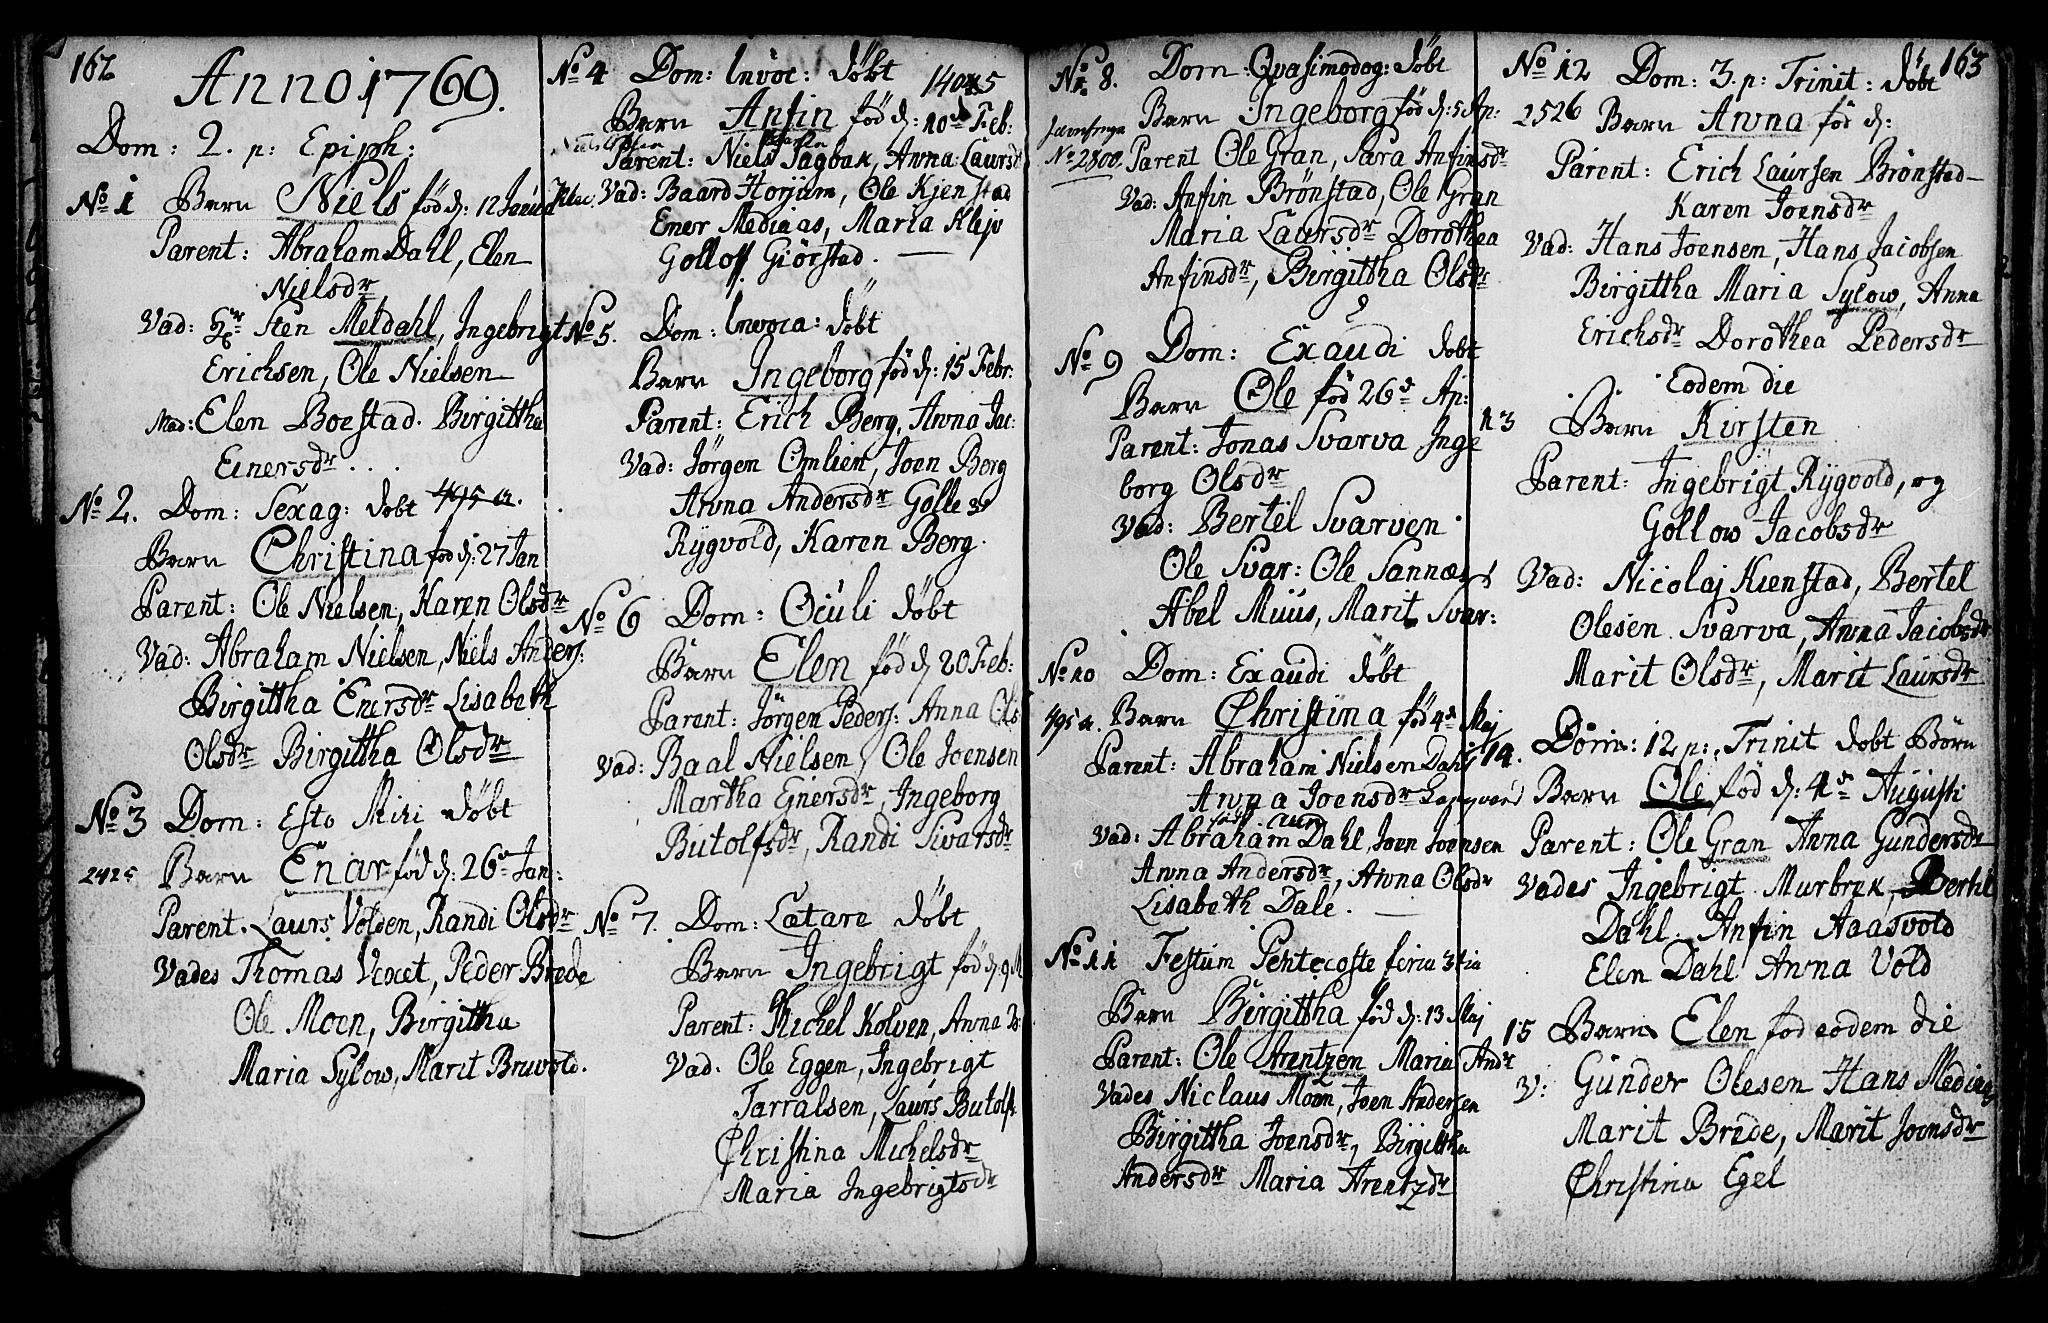 162
Anno 1769.
Dom: 2. p: Epiph:
No 1 Barn Niels fød d: 12 Januar
Parent: Abraham Dahl, Elen
Nielsdr
Vad: Hr Sten Meldahl, Ingebrigt
Erichsen, Ole Nielsen
Mad: Elen Boestad. Birgittha
Einersdr...
No 2. Dom: Sexag: døbt
Barn Christina fød d: 27 Jan
Parent: Ole Nielsen, Karen Olsdr
Vad: Abraham Nielsen, Niels Anders:
Birgittha Enersdr Lisabeth
Olsdr Birgittha Olsdr
No 3 Dom: Esto Mihi døbt
2425 Barn Enar fød d: 26 Jan:
Parent. Laurs Volden, Randi Olsdr
Vades Thomas Vexet, Peder Brede
Ole Moen, Birgittha
Maria Sylow, Marit Bruvold.
No 4 Dom: Invoc: døbt
Barn Anfin fød d: 10de Feb:
Parent: Niels Sagbak, Anna Laursd
Vad: Baard Horjum, Ole Kjenstad
Ener Mediaas, Marta Klejv
Golloff Giørstad. —
No 5. Dom: Invoca: døbt
Barn Ingeborg fød d: 15 Febr:
Parent: Erich Berg, Anna Jac:
Vad: Jørgen Omlien, Joen Berg
Anna Andersdr Golle
Rygvold, Karen Berg.
No 6 Dom: Oculi døbt
Barn Elen fød d 20 Feb:
Parent: Jørgen Peders: Anna Ols
Vad: Baal Nielsen Ole Joensen
Martha Enersdr, Ingeborg
Butolfsdr, Randi Sivarsdr
No 7. Dom: Lætare døbt
Barn Ingebrigt fød d 9 M
Parent: Michel Kolven, Anna
Vad. Ole Eggen, Ingebrigt
Tarralsen, Laurs Butolfs
Christina Michelsdr
Maria Ingebrigtsdr
No 8. Dom: Qvasimodog: døbt
Barn Ingeborg fød d: 5 Ap:
No 2800. Parent Ole Gran, Sara Anfinsdr
Vad: Anfin Brønstad, Ole Gran
Maria Laursdr Dorothea
Anfinsdr, Birgittha Olsdr
No 9 Dom: Exaudi døbt
Barn Ole fød 26d Ap:
Parent: Jonas Svarva Inge
borg Olsdr
Vad: Bertel Svarven
Ole Svar: Ole Sannæs
Abel Muus, Marit Svar:
No 10 Dom: Exaudi døbt
495 a. Barn Christina fød 4d Maj
Parent: Abraham Nielsen Dahl
Anna Joensdr
Vad: Abraham Dahl, Joen Joensen
Anna Andersdr, Anna Olsdr
Lisabeth Dale. —
No 11 Festum Pentecoste feria 3tia
Barn Birgittha fød d: 13 Maj
Parent: Ole Arentzen Maria Andr
Vades Niclaus Moon, Joen Andersen
Birgittha Joensdr, Birgittha
Andersdr Maria Arentzdr
163
No 12 Dom: 3. p: Trinit: døbt
2526 Barn Anna fød d:
Parent: Erich Laursen Brønstad
Karen Joensdr
Vad: Hans Joensen, Hans Jacobsen
Birgittha Maria Sylow, Anna
Erichsdr Dorothea Pedersdr
Eodem die
13 Barn Kirsten
Parent: Ingebrigt Rygvold, og
Gollow Jacobsdr
Vad: Nicolaj Kienstad, Bertel
Olesen Svarva, Anna Jacobsdr
Marit Olsdr, Marit Laursdr
14. Dom: 12 p: Trinit døbt Børn
Barn Ole fød d: 4d Augusti
Parent: Ole Gran Anna Gundersdr
Vades Ingebrigt Murbrek, Bertel
Dahl. Anfin Aasvold
Elen Dahl Anna Vold
15 Barn Elen fød eodem die
V: Gunder Olesen Hans Mediaas
Marit Brede, Marit Joensdr
Christina Egel